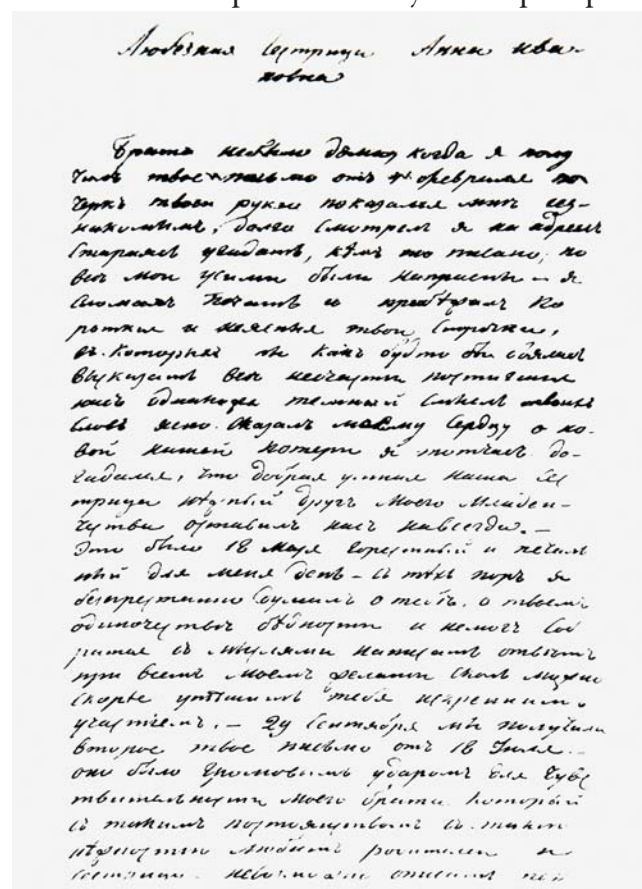 Любезная сестрица Анна Ива-
новна
Брата небыло дома, когда я полу
чилъ твое письмо отъ февраля по
черкъ твоей руки показался мнѣ нез-
накомымъ, долго смотрелъ я на адресъ
стараясь угадать, кѣмъ то писано, но
все мои усилия были напрасны – я
сломалъ печать и прочѣлъ ко
роткия и неясныя твои строчки,
въ которыхъ ты какъ будто бы боялась
высказать все несчастье постигшее
насъ однакожъ темный смыслъ твоихъ
словъ ясно сказалъ моему сердцу о но-
вой нашей потери я тотчасъ до-
гадался, что добрая умная наша сес
трица нѣжный другъ моего младен-
чества оставилъ насъ навсегда. –
Это было 18 мая горестный и печаль
ный для меня день – съ тѣхъ поръ я
безпрестанно думалъ о тебѣ, о твоемъ
одиночествѣ бѣдности и немогъ соб
раться съ мыслями написать отвѣтъ
при всемъ моемъ желании сколь можно
скорѣе утѣшить тебя искреннимъ
участиемъ. – 29 сентября мы получили
второе твое письмо отъ 18 Июля. –
оно было громовымъ ударомъ для чувс
твительности моего брата. который
съ такимъ постоянствомъ съ такою
нѣжностью любилъ родителей и
сестрицу. невозможно описать